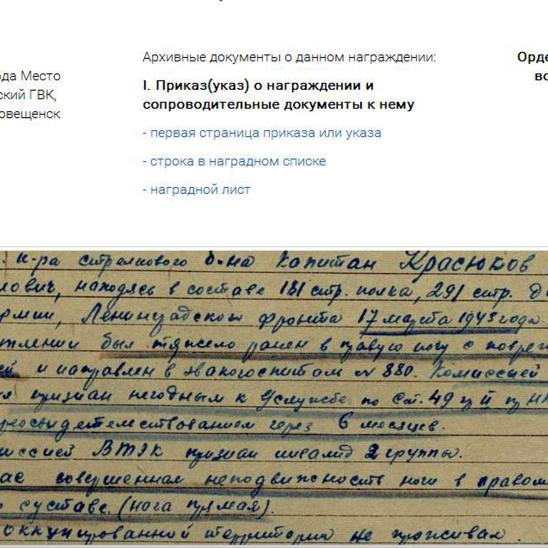 Архивные документы о данном награждении:
Орде
ода Место
во
ский ГВК,
I. Приказ(указ) о награждении и
овещенск
сопроводительные документы к нему
- первая страница приказа или указа
- строка в наградном списке
- наградной лист
к-ра стрелкового б-на Капитан Красюков
лович, находясь в составе 181 стр. полка, 291 стр. д
рмии, Ленинградского фронта 17 марта 1943 года
туплении был тяжело ранен в правую ногу с повреж
ей и направлен в эвакогоспиталь № 880. Комиссией
признан негодным к службе по ст. 49
переосвидетельствованием через 6 месяцев.
миссией ВТЭК признан инвалид 2 группы.
час совершенная неподвижность ноги в правом
суставе (нога прямая).
оккупированной территории не проживал.